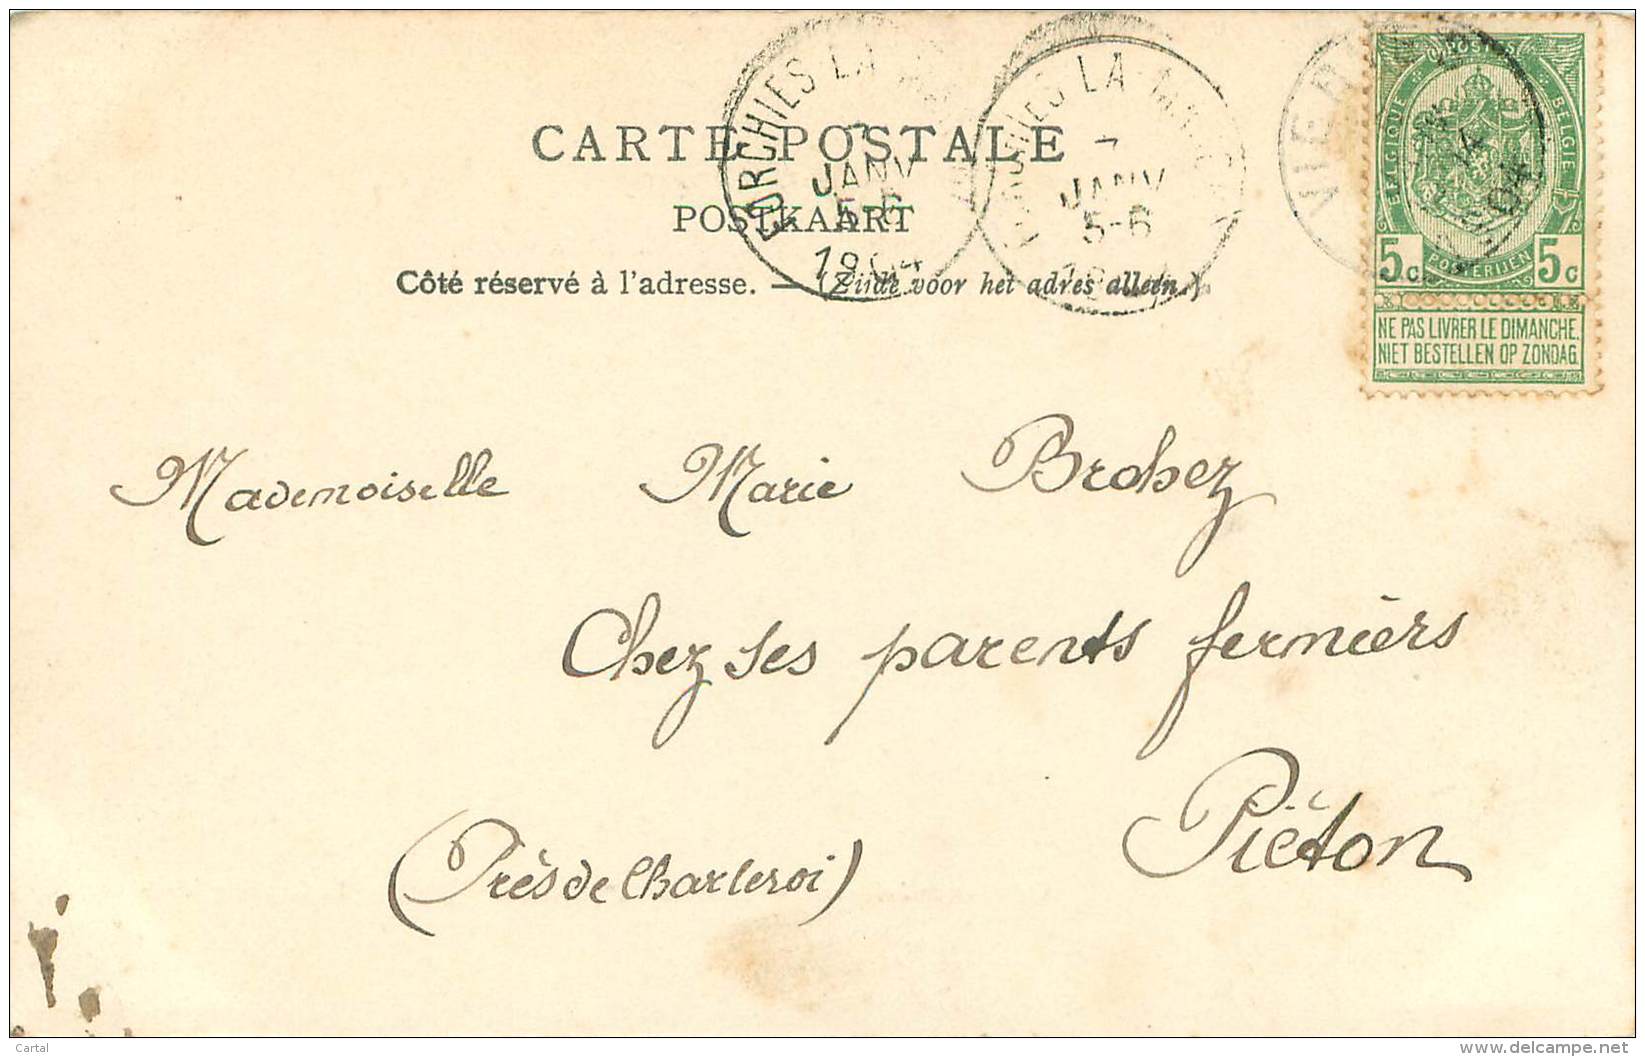 CARTE POSTALE
POSTKAART
Côté réservé à l'adresse. — (Zijde voor het adres alleen.)
FORCHIES LA
7
JANV
5-6
1904
LA
7
JANV
5-6
POSTES
BELGIQUE
BELGIE
POSTERIJEN
14
04
5c 5c
NE PAS LIVRER LE DIMANCHE.
NIET BESTELLEN OP ZONDAG.
Mademoiselle Marie Brohez
Chez ses parents fermiers
Piéton
(Près de Charleroi)
Cartal
delcampe.net